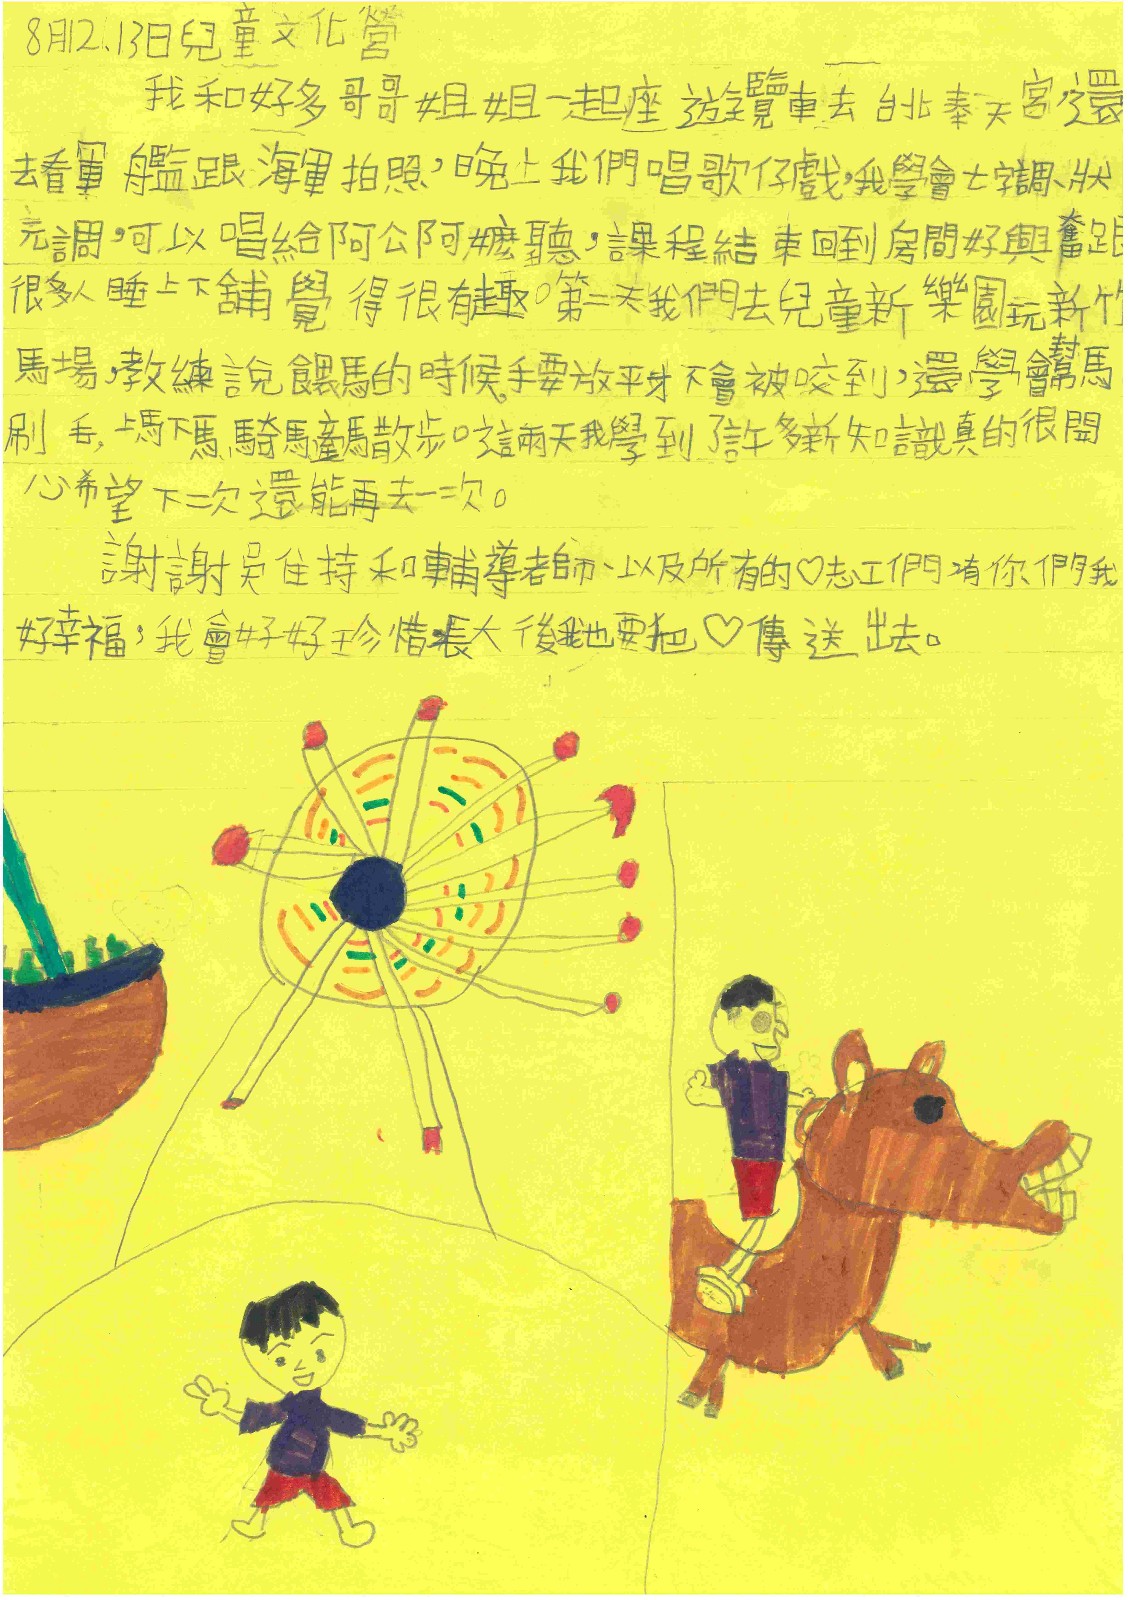 8月12、13日兒童文化營
我和好多哥哥姐姐一起座遊覽車去台北奉天宮，還
去看軍艦跟海軍拍照，晚上我們唱歌仔戲，我學會七字調、狀
元調，可以唱給阿公阿嬤聽，課程結束回到房間好興奮跟
很多人睡上下舖覺得很有趣。第二天我們去兒童新樂園玩新竹
馬場，教練說餵馬的時候，手要放平才不會被咬到，還學會幫馬
刷毛，上馬下馬騎馬牽馬散步。這兩天我學到了許多新知識真的很開
心希望下二次還能再去一次。
謝謝吳住持和輔導老師、以及所有的♡志工們有你們我
好幸福，我會好好珍惜，長大後我也要把♡傳送出去。